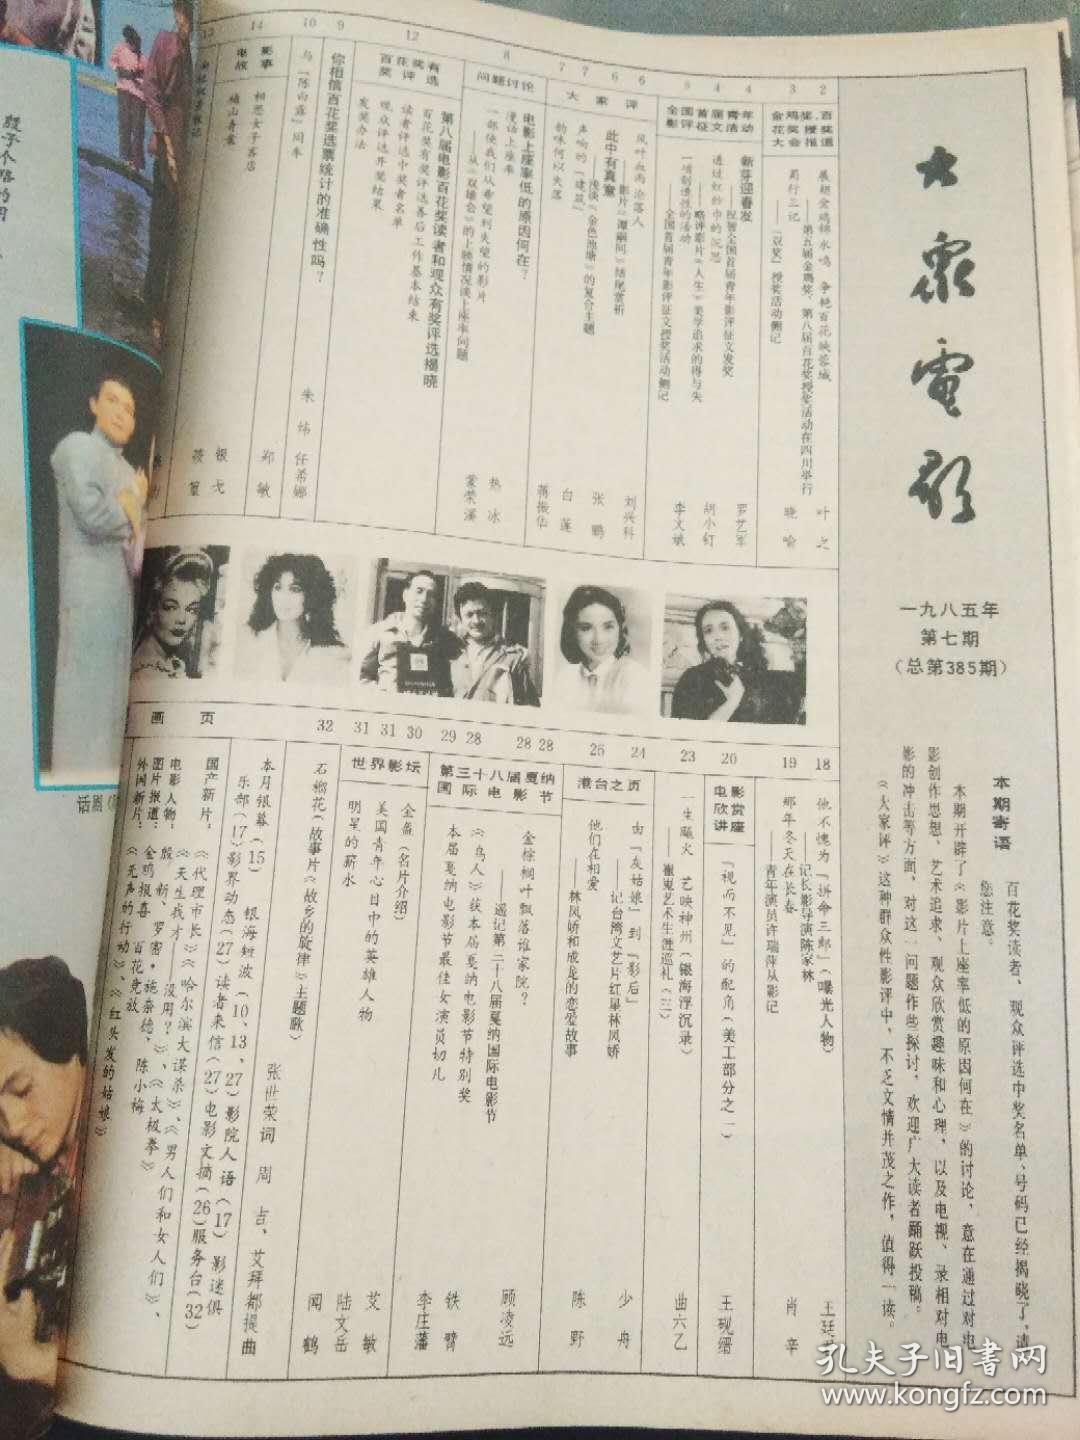 大众电影
一九八五年
第七期
（总第385期）
本期寄语
百花奖读者、观众评选中奖名单、号码已经揭晓了，请您注意。
本期开辟了《影片上座率低的原因何在》的讨论，意在通过对电影创作思想、艺术追求、观众欣赏趣味和心理，以及电视、录相对电影的冲击等方面，对这一问题作些探讨，欢迎广大读者踊跃投稿。
《大家评》这种群众性影评中，不乏文情并茂之作，值得一读。
2
展翅金鸡锦水鸣 争艳百花映蓉城
——第五届金鸡奖、第八届百花奖授奖活动在四川举行
叶之
3
蜀行三记
——“双奖”授奖活动侧记
晓喻
4
新芽迎春发
——祝贺全国首届青年影评征文发奖
罗艺军
4
透过红纱巾的沉思
——略评影片《人生》美学追求的得与失
胡小钉
5
一请创造性的活动
——全国首届青年影评征文授奖活动侧记
李文斌
大家评
6
风叶血雨沦落人
——影片《谭嗣同》结尾赏析
刘兴科
6
此中有真意
——浅谈《金色池塘》的复合主题
张鹏
7
声响的“建筑”
白莲
7
韵味何以失落
蒋振华
8
问题讨论
电影上座率低的原因何在？
一部使我们从希望到失望的影片
——从《双雄会》的上映情况谈上座率问题
热冰
漫话上座率
蒙荣溪
12
百花奖有奖评选
第八届电影百花奖读者和观众有奖评选揭晓
百花奖有奖评选善后工作基本结束
读者评选中奖者名单
观众评选开奖结果
发奖办法
9
你相信百花奖选票统计的准确性吗？
10
与“陈白露”同车
朱炜 任希娜
14
电影故事
相思女子客店
郑敏
银戈
13
18
他不愧为“拼命三郎”（曝光人物）
——记长影导演陈家林
19
那年冬天在长春
——青年演员许瑞萍从影记
肖辛
20
电影欣赏讲座
“视而不见”的配角（美工部分之一）
王砚缙
23
一生曦火 艺映神州（银海浮沉录）
——崔嵬艺术生涯巡礼（三）
曲六乙
港台之页
24
由“灰姑娘”到“影后”
——记台湾文艺片红星林凤娇
少舟
25
他们在相爱
——林凤娇和成龙的恋爱故事
陈野
第三十八届戛纳国际电影节
28
金棕榈叶飘落谁家院？
——遥记第三十八届戛纳国际电影节
顾凌远
28
《鸟人》获本届戛纳电影节特别奖
28
本届戛纳电影节最佳女演员切儿
铁臂
29
李庄藩
世界影坛
30
31
美国青年心目中的英雄人物
艾敏
31
明星的薪水
陆文岳
32
石榴花（故事片《故乡的旋律》主题歌）
张世荣词 周吉、艾拜都提曲
闻鹤
本月银幕（15） 银海短波（10、13、27）影院人语（17） 影迷俱乐部（17）影界动态（27）读者来信（27）电影文摘（26）服务台（32）
画页
国产新片：《代理市长》《哈尔滨大谋杀》、《男人们和女人们》、《天生我才——没用？》、《太极拳》
电影人物：殷新、罗密·施奈德、陈小梅
图片报道：金鸡报喜 百花竞放
外国新片：《无声的行动》、《红头发的姑娘》
孔夫子旧书网
www.kongfz.com